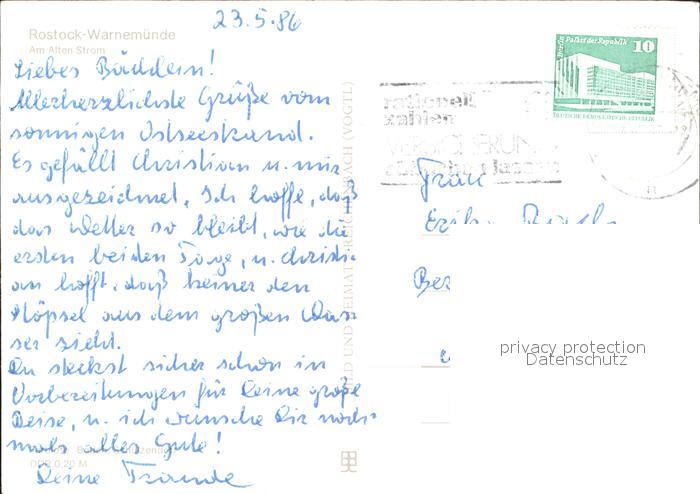 23.5.86
Rostock-Warnemünde
Am Alten Strom
Liebes
Allerherzlichste Grüße vom
sonnigen Ostseestrand.
Es gefällt Christian u. mir
ausgezeichnet. Ich hoffe, daß
das Wetter so bleibt, wie die
ersten beiden Tage, u. Christi-
an hofft, daß keiner den
Stöpsel aus dem großen Was-
ser zieht.
Du steckst sicher schon in
Vorbereitungen für Deine große
Reise, u. ich wünsche Dir noch-
mals alles Gute!
Deine
DDR 0,20 M
BILD UND HEIMAT REICHENBACH (VOGTL)
Berlin Palast der Republik
10
DEUTSCHE DEMOKRATISCHE REPUBLIK
rationell
zahlen
Frau
privacy protection
Datenschutz